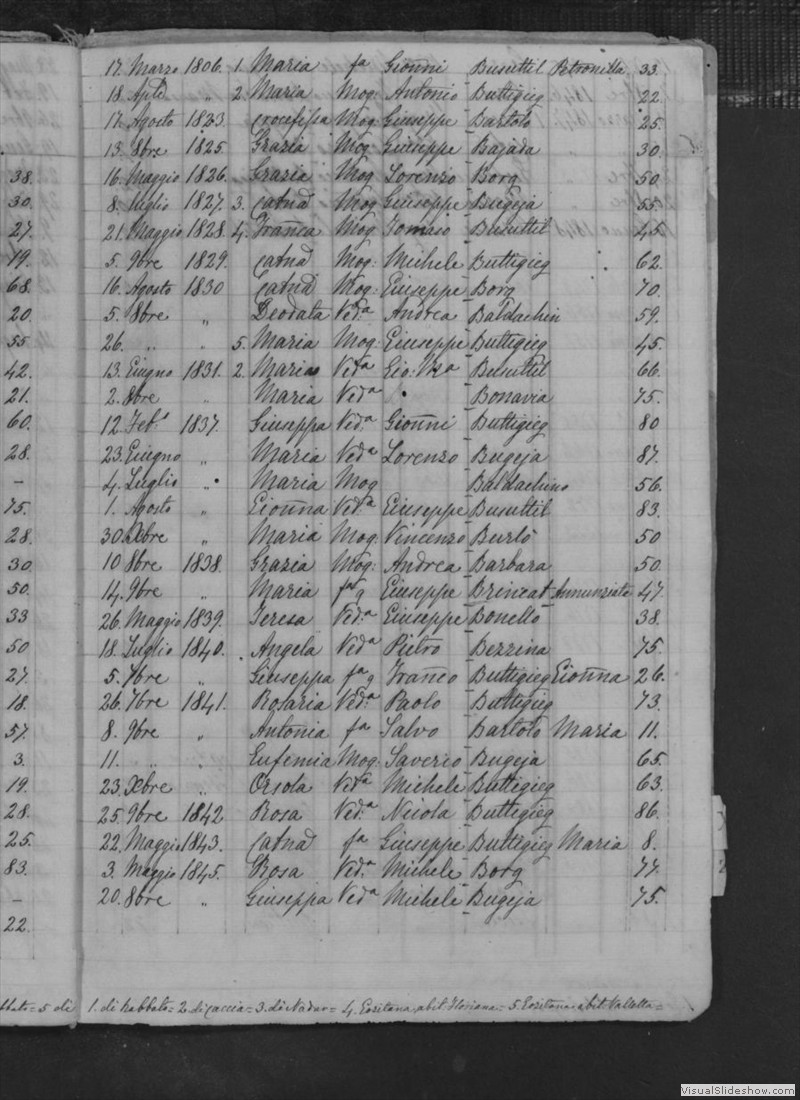 17. Marzo 1806. 1. Maria fa Gionni Busuttil Petronilla 33.
18. Aple „ 2. Maria Mog: Antonio Buttigieg 22.
17. Agosto 1823 Crocefissa Mog: Giuseppe Bartolo 25.
13. 8bre 1825. Grazia Mog: Giuseppe Bajada 30.
38. 16. Maggio 1826. Grazia Mog Lorenzo Borg 50
30. 8. Luglio 1827. 3. Catnã Mog Giuseppe Bugeja 55
27. 21. Maggio 1828. 4. Franca Mog Tomaso Busuttil 45.
19. 5. 9bre 1829. Catnã Mog: Michele Buttigieg 62.
68. 16. Agosto 1830 Catnã Mog: Giuseppe Borg 70.
20 5. 8bre „ Deodata Veda Andrea Baldachin 59.
55 26. „ „ 5. Maria Mog: Giuseppe Buttigieg 45.
42. 13. Giugno 1831. 2. Maria Veda Gio: Busuttil 66.
21. 2. 8bre „ Maria Veda Bonavia 75.
60. 12. Feb. 1837. Giuseppa Ved.a Gionni Buttigieg 80
28. 23. Giugno „ Maria Veda Lorenzo Bugeja 87.
– 4. Luglio „ Maria Mog Baldachino 56.
75. 1. Agosto „ Gionna Ved.a Giuseppe Busuttil 83.
28. 30. Xbre „ Maria Mog: Vincenzo Burlò 50
30. 10 8bre 1838. Grazia Mog: Andrea Barbara 50.
50. 14. 9bre „ Maria fag Giuseppe Brincat Annunziata 47.
33 26. Maggio 1839. Teresa Ved.a Giuseppe Bonello 38.
50 18. Luglio 1840. Angela Veda Pietro Bezzina 75.
27. 5. 7bre „ Giuseppa fag Franco Buttigieg Gionna 26.
18. 26. 7bre 1841. Rosaria Ved.a Paolo Buttigieg 73.
57. 8. 9bre „ Antonia fa Salvo Bartolo Maria 11.
3. 11. „ „ Eufemia Mog: Saverio Bugeja 65.
19. 23. Xbre „ Orsola Veda Michele Buttigieg 63.
28. 25. 9bre 1842 Rosa Ved.a Nicola Buttigieg 86.
25. 22. Maggio 1843. Catnã fa Giuseppe Buttigieg Maria 8.
83. 3. Maggio 1845. Rosa Ved.a Michele Borg 77.
– 20. 8bre „ Giuseppa Veda Michele Bugeja 75.
22.
5 di 1. di Rabbato = 2. di Caccia = 3. di Nadur = 4. Gozitana abit. Floriana = 5. Gozitana abit Valletta =
VisualSlideshow.com